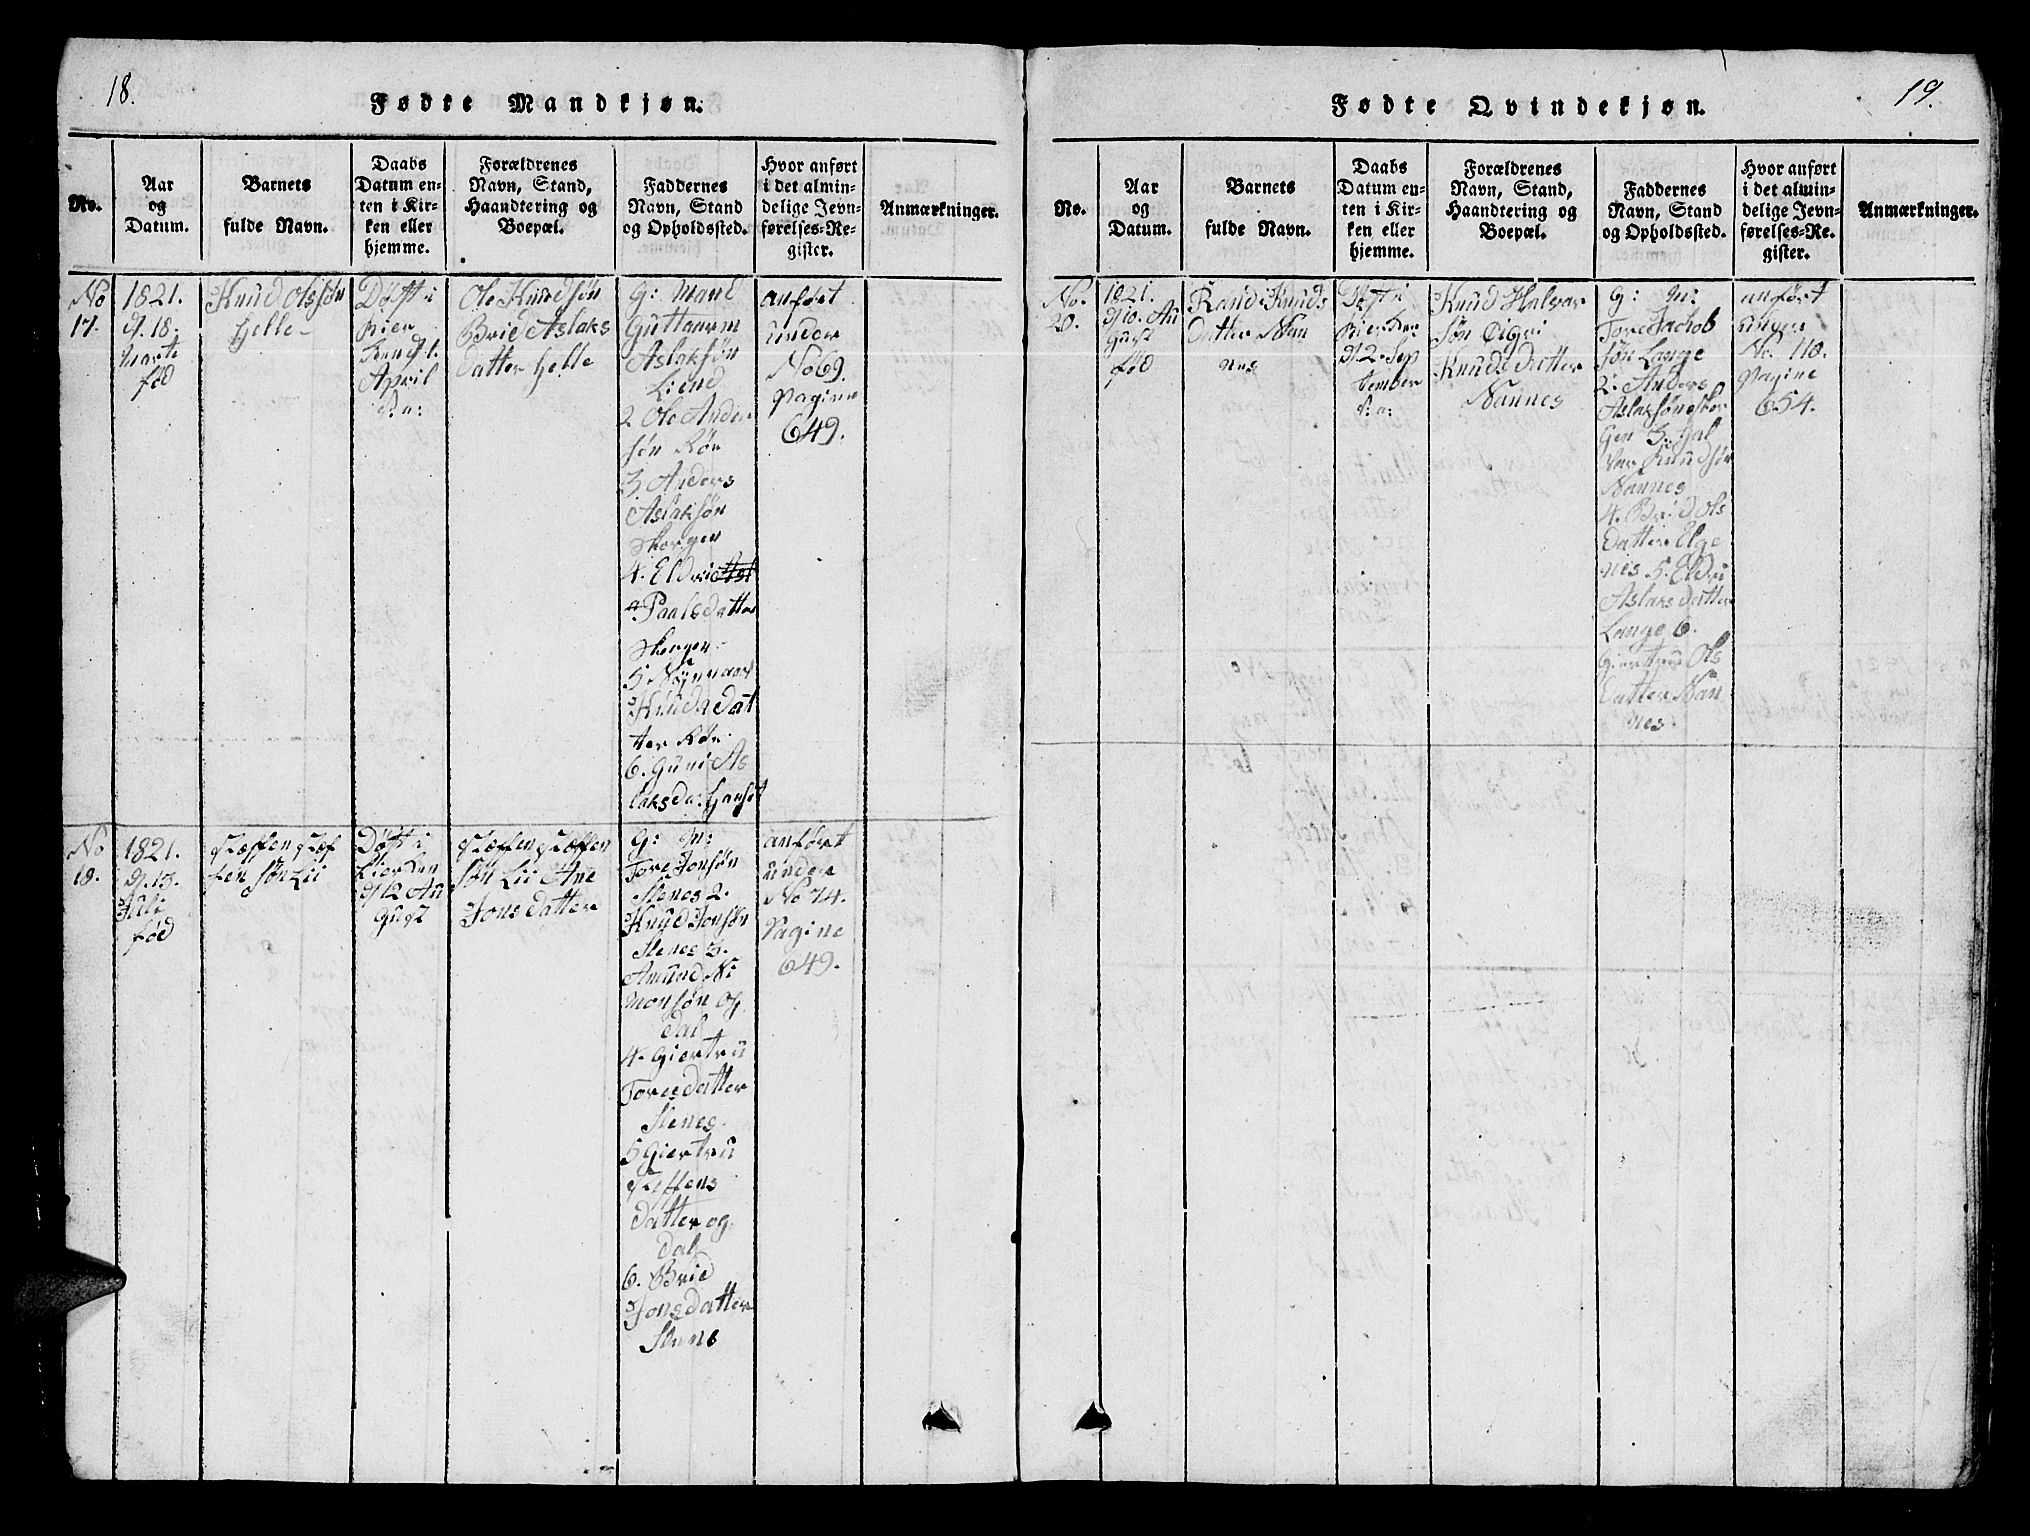 18.
Fødte Mandkjøn.
No.
Aar
og
Datum.
Barnets
fulde Navn.
Daabs
Datum en-
ten i Kir-
ken eller
hjemme.
Forældrenes
Navn, Stand,
Haandtering og
Boepæl.
Faddernes
Navn, Stand
og Opholdssted.
Hvor anført
i det almin-
delige Jevn-
førelses-Re-
gister.
Anmærkninger.
No
17.
1821.
d. 18.
Marti
fød
Knud Olssøn
Helle
Døbt i
April
Ole Knudsøn
Brie Aslaks
datter Helle
G: Mand
Guttourm
Aslaksøn
Liend
2. Ole Ander
søn Rør
3. Anders
Aslaksøn
Skorgen
4. Eldri
Paalsdatter
Skorgen
5
Knudsdat
ter Rør.
6. Guni As
laksda: Hanset
anført
under
No 69.
Pagina
649.
No
18.
1821.
d. 13.
Juli
fød
Steffen Stef
fen søn Lii
Døbt i
Kierken
d 12 Au
gust
Steffen Steffen
søn Lii Ane
Jonsdatter
G: M:
Tore Jonsøn
Stenes 2.
Knud Jonsøn
Stenes 3.
Amund Si
monsøn og
dal
4. Giertru
Toresdatter
Stenes.
5 Giertru
Steffens
datter og
dal
6. Brie
Jonsdatter
Stene
anført
under
No 74.
Pagine
649.
19.
Fødte Qvindekjøn.
No.
Aar
og
Datum.
Barnets
fulde Navn.
Daabs
Datum en-
ten i Kir-
ken eller
hjemme.
Forældrenes
Navn, Stand,
Haandtering og
Boepæl.
Faddernes
Navn, Stand
og Opholdssted.
Hvor anført
i det almin-
delige Jevn-
førelses-Re-
gister.
Anmærkninger.
No.
20.
1821.
d 10. Au
gust
fød
Randi Knuds
datter Nan
nes
Døbt i
Kierken
d 2. Sep
tember
s: a:
Knud Halvar
søn Øigri
Knudsdatter
Nannes
G: M:
Tore Jachob
søn Lange
2. Anders
Aslaksøn Skor
gen 3. Hal
var Knudsøn
Nannes
4. Brid Ols
datter Elge
nes 5. Eldri
Aslaksdatter
Lange 6.
Giertru Ols
datter Nan
nes.
anført
under
No. 118.
Pagine
654.